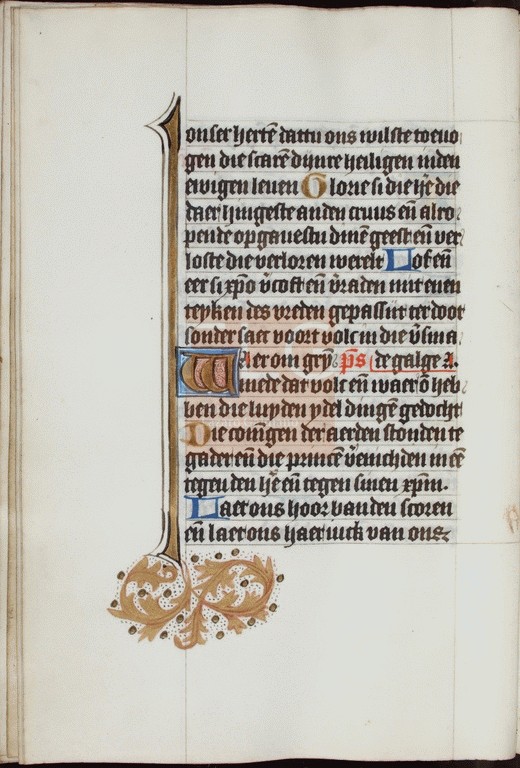 onser hertē dattu ons wilste toeuo
gen die scarē dijnre heiligen inden
ewigen leuen Glorie si die hē die
daer hingeste anden cruus eñ alro
pende op gauestu dinē geest eñ ver
loste die verloren werelt Lof eñ
eer si xp̄o v̄coft eñ v̄raden mit enen
teyken des vreden gepassijt ter doot
sonder saer voort volc in die v̄sma
Waer om gry ps de galge A.
mede dat volc eñ waerō heb
ben die luyden ydel dingē gedocht
Die coningen der aerden stonden te
gader eñ die princē v̄enichden in eē
tegen den hē eñ tegen sinen xpm̄.
Laet ons hoor banden scoren
eñ laet ons haer iuck van ons